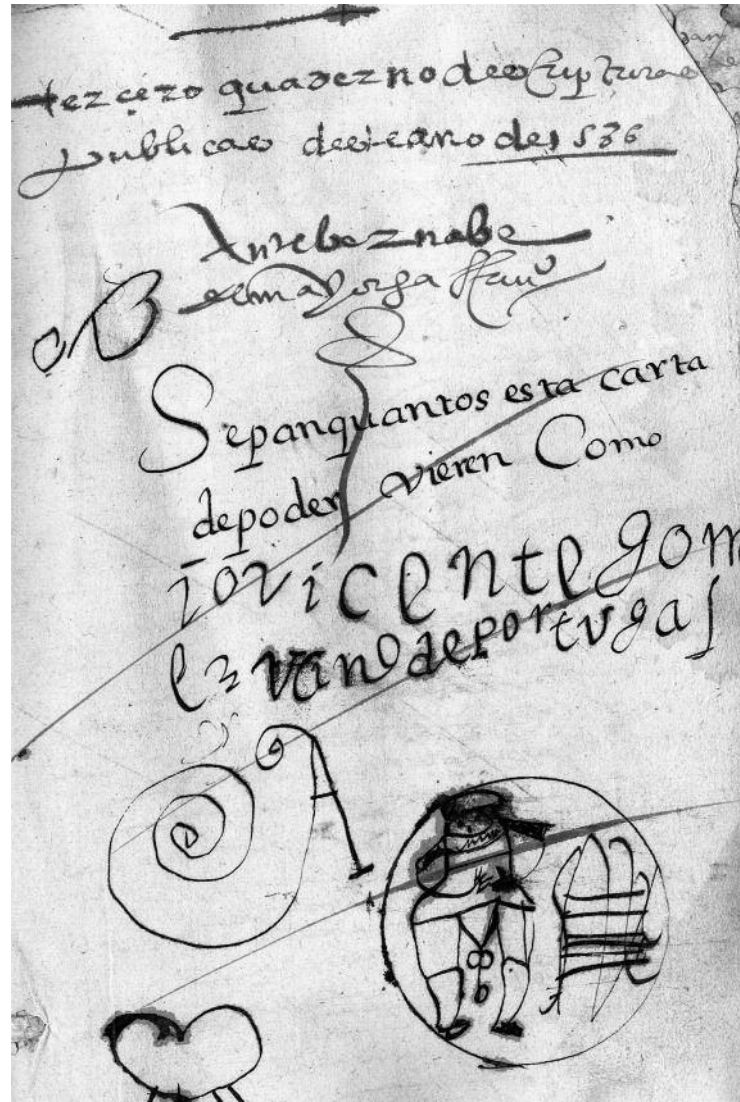 tercero quaderno de escripturas
publicas deste año de 1586
Ante bernabe
de mayorga
Sepan quantos esta carta
de poder vieren Como
io vicente gom
ez vºno de portugal
A